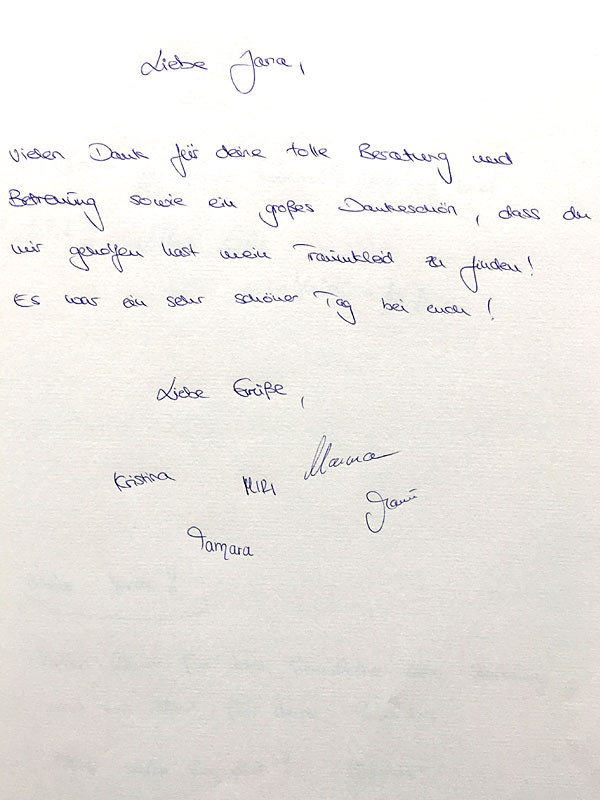 Liebe Jana,
vielen Dank für deine tolle Beratung und
Betreuung sowie ein großes Dankeschön, dass du
mir geholfen hast mein Traumkleid zu finden!
Es war ein sehr schöner Tag bei euch!
Liebe Grüße,
Kristina MIRI
Tamara